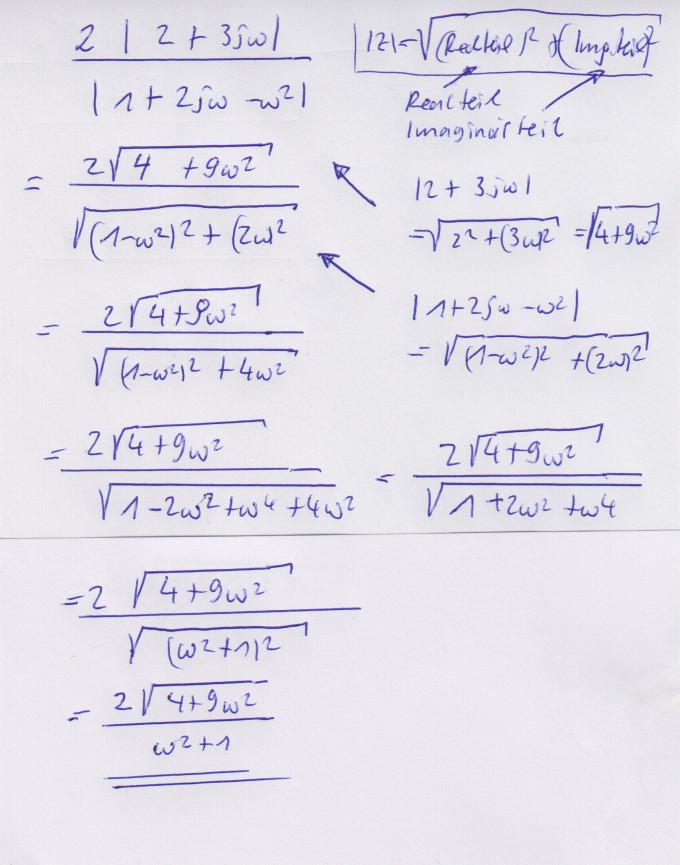 2 |2 + 3jω| / |1 + 2jω - ω²|
|z| = √((Realteil)² + (Imgteil)²)
Realteil
Imaginärteil
= 2√(4 + 9ω²) / √((1-ω²)² + (2ω)²)
|2 + 3jω|
= √(2² + (3ω)²) = √(4+9ω²)
= 2√(4+9ω²) / √((1-ω²)² + 4ω²)
|1+2jω - ω²|
= √((1-ω²)² + (2ω)²)
= 2√(4+9ω²) / √(1-2ω²+ω⁴+4ω²) = 2√(4+9ω²) / √(1+2ω²+ω⁴)
= 2 √(4+9ω²) / √((ω²+1)²)
= 2√(4+9ω²) / ω²+1